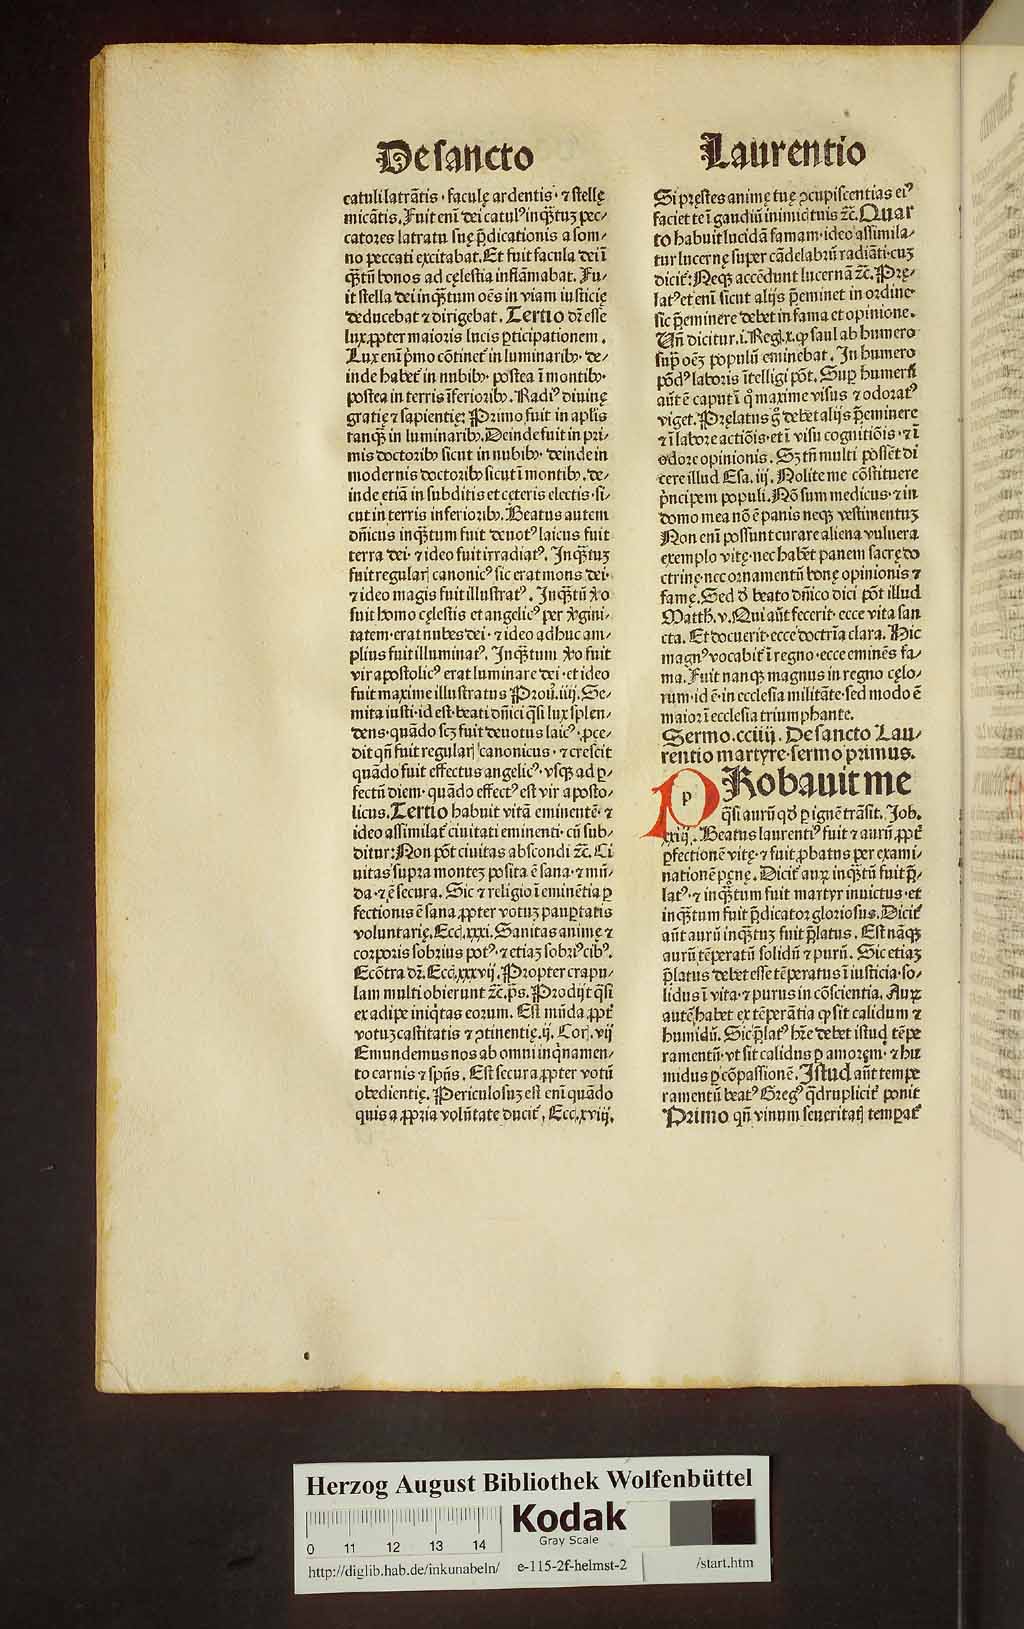 De sancto
Laurentio
catuli latrãtis · faculę ardentis · ⁊ stellę
micãtis. Fuit enĩ dei catulꝰ inqᷓtuꝫ pec⸗
catores latratu suę p̃dicationis a som⸗
no peccati excitabat. Et fuit facula dei ĩ
qᷓtũ bonos ad cęlestia inflãmabat. Fu⸗
it stella dei inqᷓtum oẽs in viam iusticię
deducebat ⁊ dirigebat. Tertio dr̃ esse
lux ꝓpter maioris lucis ꝑticipationem.
Lux enĩ pͥmo cõtinet᷑ in luminaribꝰ· de⸗
inde habet᷑ in nubibꝰ· postea ĩ montibꝰ·
postea in terris ĩferioribꝰ. Radiꝰ diuinę
gratię ⁊ sapientię: Primo fuit in apl̃is
tanqᷓ in luminaribꝰ. Deinde fuit in pri⸗
mis doctoribꝰ sicut in nubibꝰ· deinde in
modernis doctoribꝰ sicut ĩ montibꝰ. de⸗
inde etiã in subditis et cęteris electis · si⸗
cut in terris inferioribꝰ. Beatus autem
dñicus inqᷓtum fuit deuotꝰ laicus fuit
terra dei · ⁊ ideo fuit irradiatꝰ. Inqᷓtuꝫ
fuit regularꝭ canonicꝰ sic erat mons dei·
⁊ ideo magis fuit illustratꝰ. Inqᷓtũ ꝟo
fuit homo cęlestis et angelicꝰ per ꝟgini⸗
tatem · erat nubes dei · ⁊ ideo adhuc am⸗
plius fuit illuminatꝰ. Inqᷓtum ꝟo fuit
vir apostolicꝰ erat luminare dei · et ideo
fuit maxime illustratus Prou. iiij. Se⸗
mita iusti · id est · beati dñici qͣsi lux splen⸗
dens · quãdo scꝫ fuit deuotus laicꝰ · ꝓce⸗
dit qñ fuit regularꝭ canonicus · ⁊ crescit
quãdo fuit effectus angelicꝰ · vsqꝫ ad ꝑ⸗
fectũ diem · quãdo effectꝰ est vir aposto⸗
licus. Tertio habuit vitã eminentẽ · ⁊
ideo assimilat᷑ ciuitati eminenti · cũ sub⸗
ditur: Non põt ciuitas abscondi ⁊c̃. Ci
uitas supra monteꝫ posita ẽ sana · ⁊ mũ⸗
da · ⁊ ẽ secura. Sic ⁊ religio ĩ eminẽtia ꝑ
fectionis ẽ sana ꝓpter votuꝫ pauꝑtatis
voluntarię. Ecc̃. xxxi. Sanitas animę ⁊
corporis sobrius potꝰ · ⁊ etiaꝫ sobriꝰ cibꝰ.
Ecõtra dr̃. Ecc̃. xxxvij. Propter crapu⸗
lam multi obierunt ⁊c̃. p̃s. Prodijt qͣsi
ex adipe iniqͥtas eorum. Est mũda ꝓpt᷑
votuꝫ castitatis ⁊ ꝯtinentię. ij. Corꝭ. vij
Emundemus nos ab omni inqͥnamen⸗
to carnis ⁊ spũs. Est secura ꝓpter votũ
obedientię. Periculosuꝫ est enĩ quãdo
quis a ꝓpria volũtate ducit᷑. Ecc̃. xviij.
Si pręstes animę tuę ꝯcupiscentias eiꝰ
faciet te ĩ gaudiũ inimicꝭ tuis ⁊c̃. Quar
to habuit lucidã famam · ideo assimila⸗
tur lucernę super cãdelabrũ radiãti · cuꝫ
dicit᷑: Neqꝫ accẽdunt lucernã ⁊c̃. Prę⸗
latꝰ et enĩ sicut alijs p̃eminet in ordine·
sic p̃eminere debet in fama et opinione.
Uñ dicitur. i. Reg. x. ꝙ saul ab humero
supͣ oẽꝫ populũ eminebat. In humero
põdꝰ laboris ĩtelligi põt. Suꝑ humerũ
aũt ẽ caput ĩ qͦ maxime visus ⁊ odoratꝰ
viget. Prelatus gͦ debet alijs p̃eminere
⁊ ĩ labore actiõis · et ĩ visu cognitiõis · ⁊ ĩ
odore opinionis. Sꝫ tñ multi possẽt di
cere illud Esa. iij. Nolite me cõstituere
pͥncipem populi. Nõ sum medicus · ⁊ in
domo mea nõ ẽ panis neqꝫ vestimentuꝫ
Non enĩ possunt curare aliena vulnera
exemplo vitę · nec habẽt panem sacrę do
ctrinę · nec ornamentũ bonę opinionis ⁊
famę. Sed ꝺ̾ beato dñico dici põt illud
Matth. v. Qui aũt fecerit · ecce vita san
cta. Et docuerit · ecce doctrĩa clara. Hic
magnꝰ vocabit᷑ ĩ regno · ecce eminẽs fa⸗
ma. Fuit nanqꝫ magnus in regno cęlo⸗
rum · id ẽ · in ecclesia militãte · sed modo ẽ
maior ĩ ecclesia triumphante.
Sermo. cciiij. De sancto Lau⸗
rentio martyre · sermo primus.
p
PRobauit me
qͣsi aurũ qꝺ̾ ꝑ ignẽ trãsit. Job.
xxiij. Beatus laurentiꝰ fuit ⁊ aurũ ꝓpt᷑
ꝑfectionẽ vitę · ⁊ fuit ꝓbatus per exami⸗
nationẽ pęnę. Dicit᷑ auꝝ inqᷓtũ fuit p̃⸗
latꝰ · ⁊ inqᷓtum fuit martyr inuictus · et
inqᷓtum fuit p̃dicator gloriosus. Dicit᷑
aũt aurũ inqᷓtuꝫ fuit p̃latus. Est nãqꝫ
aurũ tẽperatũ solidũ ⁊ purũ. Sic etiaꝫ
p̃latus debet esse tẽperatus ĩ iusticia · so⸗
lidus ĩ vita · ⁊ purus in cõscientia. Auꝝ
autẽ habet ex tẽperãtia ꝙ sit calidum ⁊
humidũ. Sic p̃latꝰ hr̃e debet istud tẽpe
ramentũ · vt sit calidus ꝑ amorẹm · ⁊ hu
midus ꝑ cõpassionẽ. Istud aũt tempe
ramentũ beatꝰ Gregꝰ qͣdruplicit᷑ ponit
Primo qñ vinum seueritatꝭ temꝑat᷑
Herzog August Bibliothek Wolfenbüttel
Kodak
Gray Scale
0 11 12 13 14
http://diglib.hab.de/inkunabeln/ e-115-2f-helmst-2 /start.htm